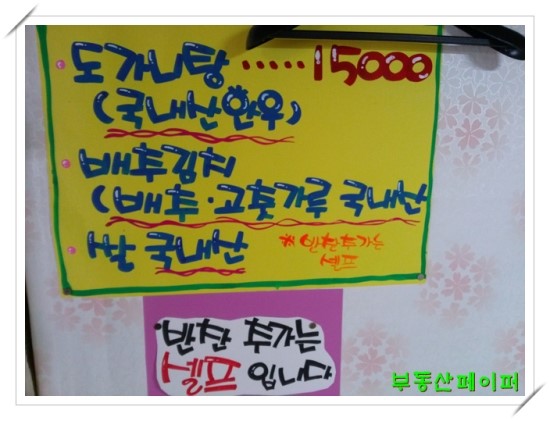 도가니탕 ·····15000
(국내산한우)
배추김치
(배추·고춧가루 국내산
쌀 국내산
※ 반찬추가는
셀프
반찬 추가는
셀프 입니다
부동산페이퍼